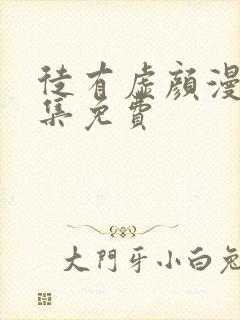 徒有虚颜漫
集免費
大門牙小白兔